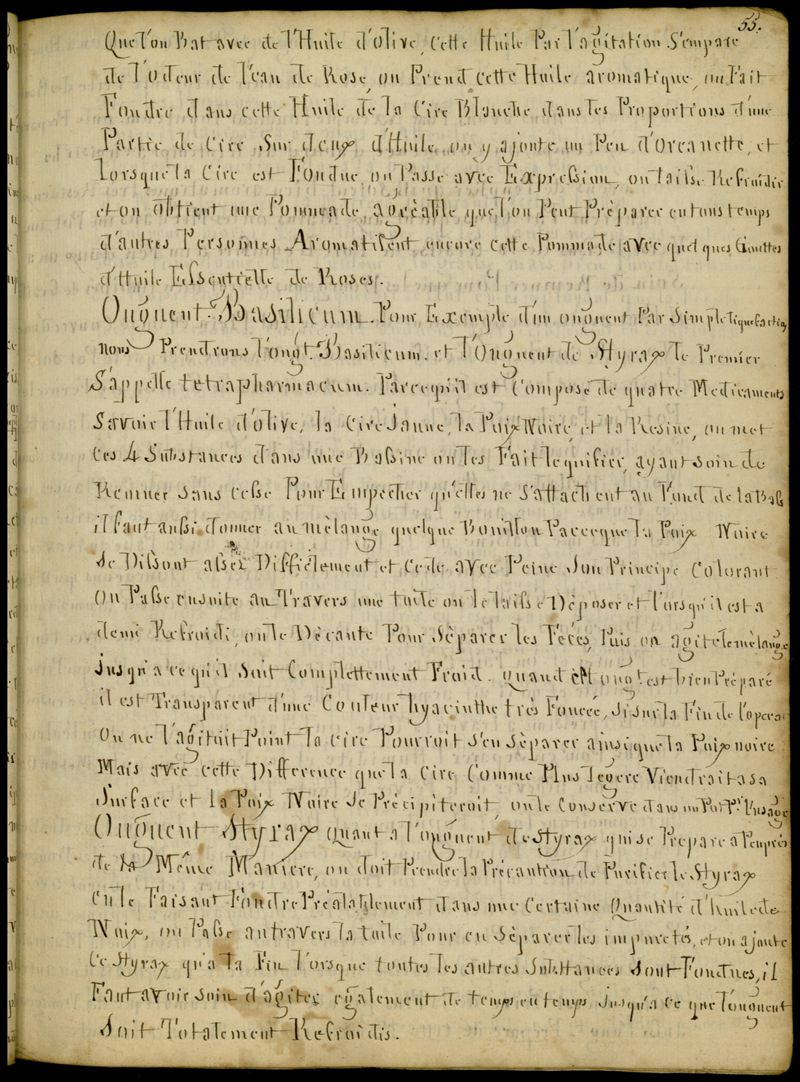 55.
Que l'on Bat avec de l'Huile d'olive, cette Huile Par l'agitation S'empare
de l'odeur de l'eau de Rose, on Prend cette Huile aromatique, on Fait
Fondre dans cette Huile de la Cire Blanche dans les Proportions d'une
Partie de Cire Sur deux d'Huile, on y ajoute un Peu d'Orcanette, et
Lorsque la Cire est Fondue, on Passe avec Expreßion, on laisse Refroidir
et on obtient une Pommade agréable que l'on Peut Préparer en tous temps
d'autres Personnes Aromatisent encore cette Pommade avec quelques Gouttes
d'Huile Essentielle de Roses.
Onguent Basilicum. Pour Exemple d'un onguent Par Simple liquefaction
nous Prendrons l'ongt. Basilicum. et l'Onguent de Styrax le Premier
S'appelle tetrapharmacum. Parcequ'il est Composé de quatre Medicaments
Savoir l'Huile d'olive, la Cire Jaune, la Poix Noire, et la Resine, on met
Ces 4 Substances dans une Baßine on les Fait liquifier, ayant soin de
Remuer Sans Ceße Pour Empecher qu'elles ne S'attachent au Fond de la Baß
il faut außi donner au mèlange quelque Bouillon Parceque la Poix Noire
Se Dißout aßez Difficlement et Cede avec Peine Son Principe Colorant
On Paße ensuite au Travers une toile on le laiße Déposer et lorsqu'il est a
demi Refroidi, on le Décante Pour Séparer les Féces, Puis on agite le mèlange
Jusqu'a ce qu'il Soit Complettement Froid. quand cet ongt est bien Préparé
il est Transparent d'une Couleur hyacinthe très Foncée, Si Sur la Fin de l'operaon
On ne l'agitoit Point la Cire Pourroit S'en Séparer ainsi que la Poix noire
Mais avec cette Difference que la Cire Comme Plus legere Viendrait a sa
Surface et la Poix Noire Se Précipiteroit, on le Conserve dans un Pot Pr. l'usage
Onguent Styrax quant a l'onguent de Styrax qui se Prepare a Peuprès
de la Même Maniere, on doit Prendre la Précaution de Purifier le Styrax
En le Faisant Fondre Préalablement dans une Certaine Quantité d'huile de
Noix, on Paße au travers la toile Pour en Séparer les impuretés, et on ajoute
Ce Styrax qu'a la Fin lorsque toutes les autres Substances Sont Fondues, il
Faut avoir Soin d'agiter egalement de temps en temps Jusqu'a ce que l'onguent
Soit Totalement Refroidis.